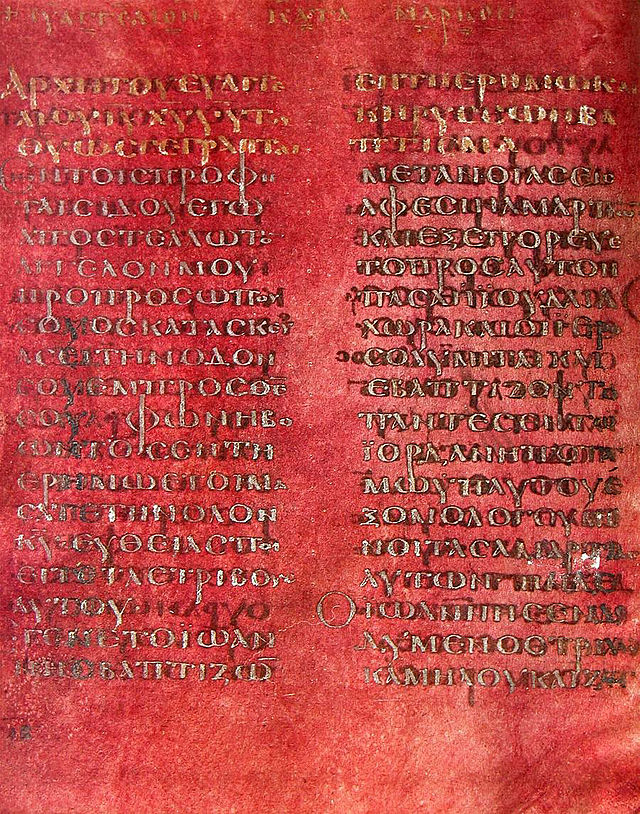 ΕΥΑΓΓΕΛΙΟΝ ΚΑΤΑ ΜΑΡΚΟΝ
ΑΡΧΗΤΟΥΕΥΑΓΓΕ
ΛΙΟΥΙΥΧΥΥΙΥΤΟΥ
ΘΥΩϹΓΕΓΡΑΠΤΑΙ
ΕΝΤΟΙϹΠΡΟΦΗ
ΤΑΙϹΙΔΟΥΕΓΩ
ΑΠΟϹΤΕΛΛΩΤΟ
ΑΓΓΕΛΟΝΜΟΥ
ΠΡΟΠΡΟϹΩΠΟΥ
ϹΟΥΟϹΚΑΤΑϹΚΕΥ
ΑϹΕΙΤΗΝΟΔΟΝ
ϹΟΥΕΜΠΡΟϹΘΕ
ϹΟΥ ΦΩΝΗΒΟ
ΩΝΤΟϹΕΝΤΗ
ΕΡΗΜΩΕΤΟΙΜΑ
ϹΑΤΕΤΗΝΟΔΟΝ
ΚΥ ΕΥΘΕΙΑϹΠΟΙ
ΕΙΤΕΤΑϹΤΡΙΒΟΥϹ
ΑΥΤΟΥ
ΕΓΕΝΕΤΟΪΩΑΝ
ΝΗϹΒΑΠΤΙΖΩ̅
ΕΝΤΗΕΡΗΜΩΚΑΙ
ΚΗΡΥϹϹΩΝΒΑ
ΠΤΙϹΜΑ
ΜΕΤΑΝΟΙΑϹΕΙϹ
ΑΦΕϹΙΝΑΜΑΡΤΙΩ
ΚΑΙΕΞΕΠΟΡΕΥΕ
ΤΟΠΡΟϹΑΥΤΟΝ
ΠΑϹΑΗΪΟΥΔΑΙΑ
ΧΩΡΑΚΑΙΟΙΙΕΡΟ
ϹΟΛΥΜΙΤΑΙΚΑΙ
ΕΒΑΠΤΙΖΟΝΤΟ
ΠΑΝΤΕϹΕΝΤΩ
ΪΟΡΔΑΝΗΠΟΤΑ
ΜΩΥΠΑΥΤΟΥΕ
ΞΟΜΟΛΟΓΟΥΜΕ
ΝΟΙΤΑϹΑΜΑΡΤΙΑϹ
ΑΥΤΩΝΗΝΔΕ
ΙΩΑΝΝΗϹΕΝΔΕ
ΔΥΜΕΝΟϹΤΡΙΧΑϹ
ΚΑΜΗΛΟΥΚΑΙΖΩ